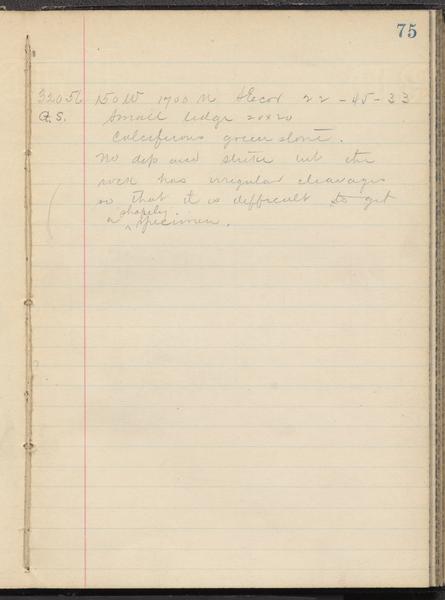 75
32056 150 W 1700 N SEcor 22-45-33
G.S. Small ledge 20x20
Calciferous green stone.
No dip and strike but the
rock has irregular cleavages
so that it is difficult to get
a shapely specimen.